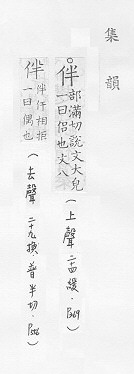 集韻
。伴 部滿切說文大皃
一曰侶也文八
(上聲 二十四緩．P369)
伴 伴仟相拒
一曰偶也
(去聲 二十九換 普半切．P556)